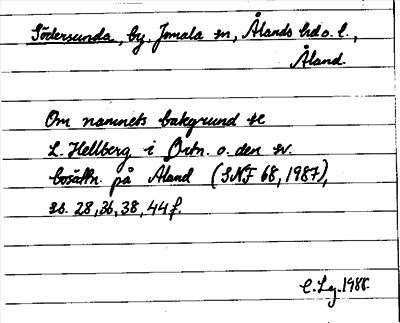 Södersunda, by, Jomala sn, Ålands hd o. l.,
Åland.
Om namnets bakgrund se
L. Hellberg i Ortn. o. den sv.
bosättn. på Åland (SNF 68, 1987),
ss. 28, 36, 38, 44 f.
C. Lg. 1988.